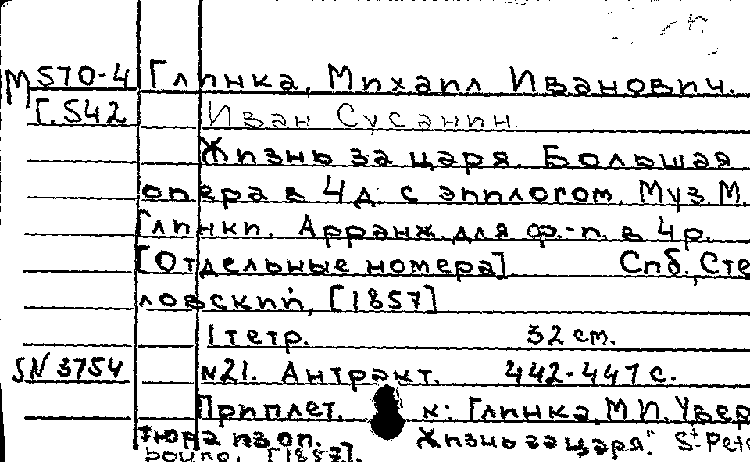 М 570-4 Глинка, Михаил Иванович.
Г.542 Иван Сусанин
Жизнь за царя. Большая
опера в 4 д. с эпилогом. Муз М.
Глинки. Арранж. для ф.-п. в 4 р.
[Отдельные номера] Спб, Сте
ловский, [1857]
1 тетр. 32 см.
SN 3754 №21. Антракт. 442-447 с.
Приплет. к: Глинка, М И. Увер
тюра из оп. Жизнь за царя." St Pete
[1857].